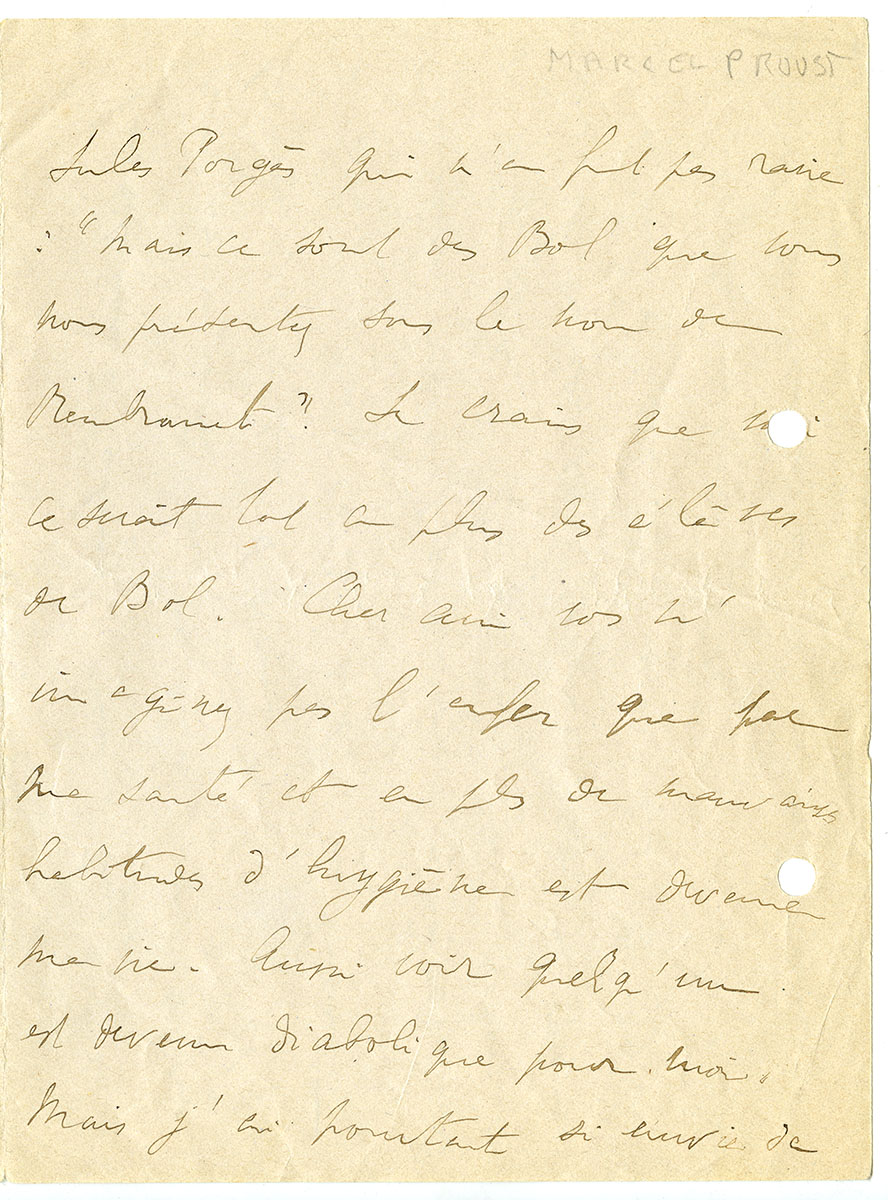 MARCEL PROUST
Jules Porgès qui n'en fut pas ravie
: "Mais ce sont des Bol que vous
nous présentez sous le nom de
Rembrandt"? Je crains que
ce serait tout au plus des élèves
de Bol. Cher ami vous n'
imaginez pas l'enfer que par
ma santé et en plus de mauvaises
habitudes d'hygiène est devenue
ma vie. Aussi voir quelqu'un
est devenu diabolique pour moi.
Mais j'ai pourtant si envie de